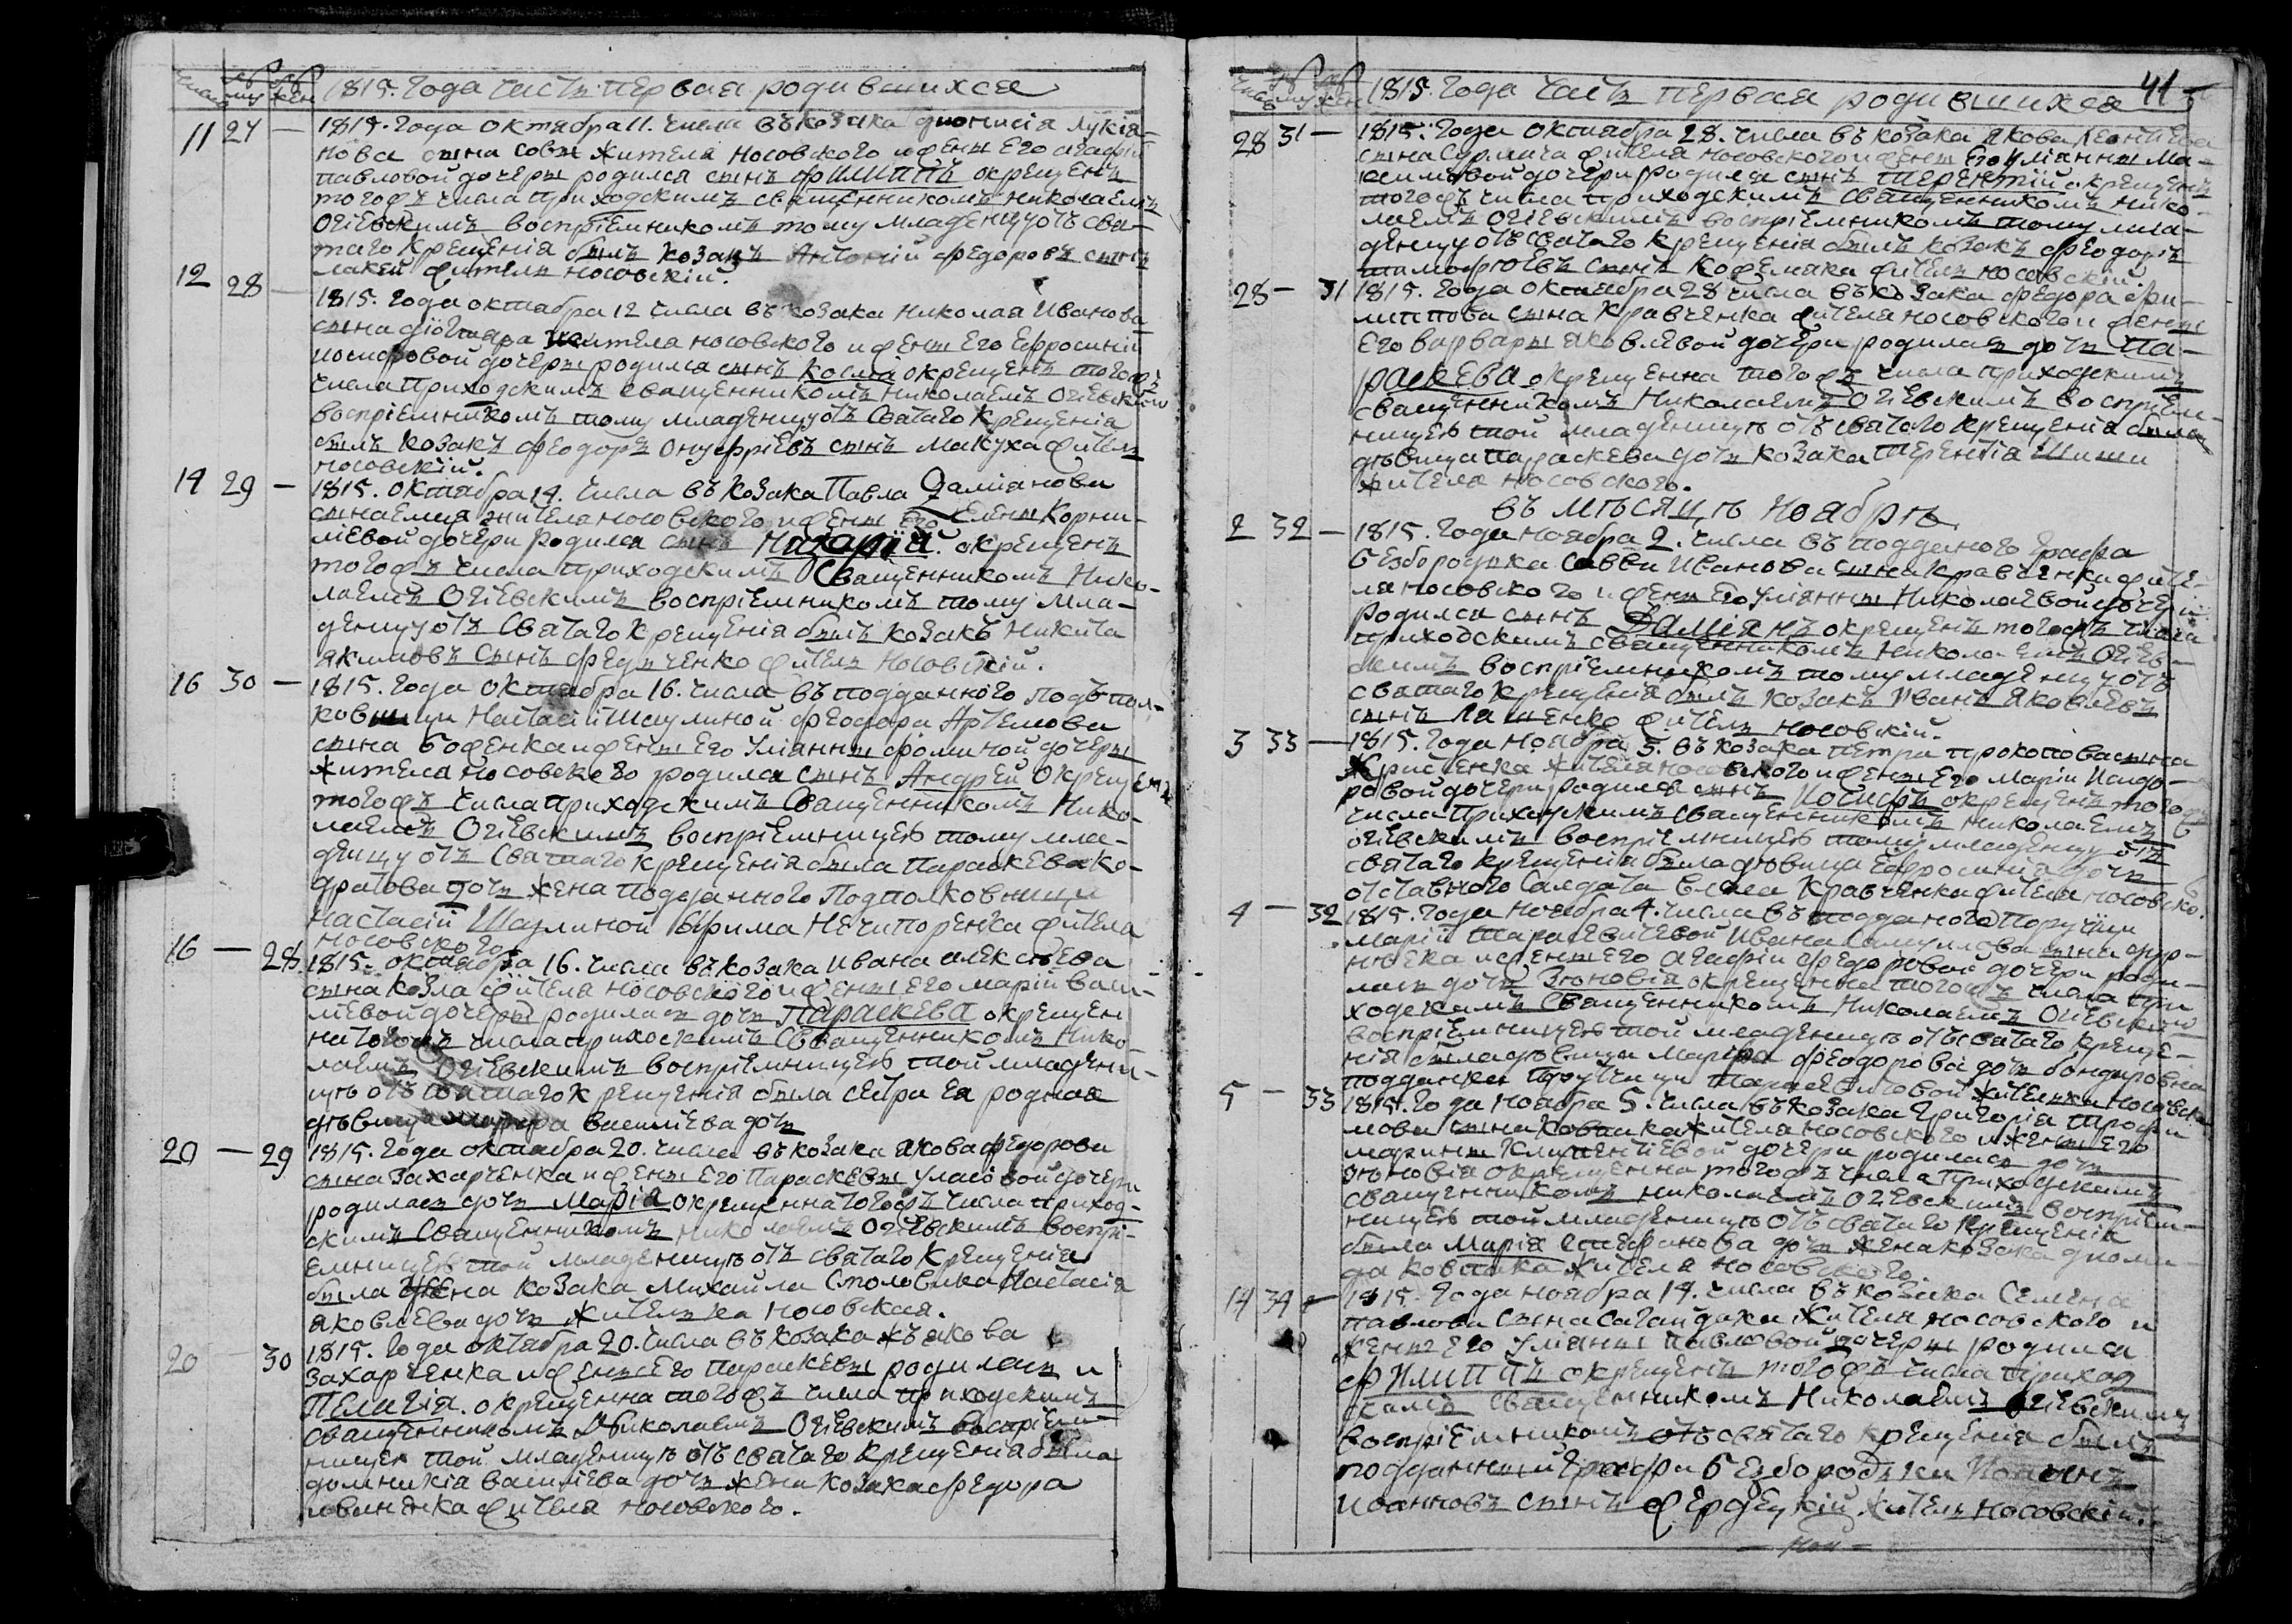 1815. Года часть первая родившихся
11 27 — 1815. Года октября 11. числа въ козака Дионисія Лукія-
нова сына Совы жителя носовского и жены его Агафіи
павловой дочеры родился сынъ Филиппъ окрещенъ
тогожъ числа приходскимъ священникомъ Николаемъ
Огіевскимъ воспріемникомъ тому младенцу отъ свя-
таго крещенія былъ козакъ Антоній Федоровъ сынъ
житель носовскій.
12 28 — 1815. Года октября 12 числа въ козака Николая Иванова
сына жителя носовского и жены его Ефросиніи
иосифовой дочеры родился сынъ Косма окрещенъ тогожъ
числа приходскимъ священникомъ Николаемъ Огіевскимъ
воспріемникомъ тому младенцу отъ святаго крещенія
былъ козакъ Феодоръ Онуфріевъ сынъ Макуха житель
носовскій.
14 29 — 1815. октября 14. числа въ козака Павла Даміанова
сына жителя носовского и жены его Елены Корни-
ліевой дочери родился сынъ Назарій. окрещенъ
тогожъ числа приходскимъ Священникомъ Нико-
лаемъ Огіевскимъ воспріемникомъ тому мла-
денцу отъ Святаго крещенія былъ козакъ Никита
Якимовъ сынъ Федченко житель Носовскій.
16 30 — 1815. Года октября 16. числа въ подданного подъпол-
ковницы Настасіи Шаулиной Феодора Артемова
сына Боженка и жены его Уліанны Фоминой дочеры
жителя носовского родился сынъ Андрей окрещенъ
тогожъ числа приходскимъ Священникомъ Нико-
лаемъ Огіевскимъ воспріемницею тому мла-
денцу отъ Святаго крещенія была Параскева Ко-
дратова дочь жена подданного Подполковницы
Настасіи Шаулиной Ефима Нечипоренка жителя
носовского
16 — 28 1815. октября 16. числа въ козака Ивана Алексѣева
сына Козла жителя носовского и жены его Маріи Васи-
ліевой дочеры родилась дочь Параскева окрещен
на тогожъ числа приходскимъ Священникомъ Нико-
лаемъ Огіевскимъ воспріемницею той младени-
цѣ отъ святаго крещенія была сестра ея родная
дѣвица Марфа Василіева дочь
20 — 29 1815. Года октября 20. числа въ козака Якова Федорова
сына Захарченка и жены его Параскевы Уласовой дочеры
родилась дочь Марія окрещенна тогожъ числа приход-
скимъ Священникомъ Николаемъ Огіевскимъ воспрі-
емницею той младеницѣ отъ святаго крещенія
была жена козака Михайла Столовика Настасія
Яковлева дочь жителька носовская.
20 — 30 1815. Года октября 20. числа въ козака Якова
Захарченка и жены его Параскевы родилась и
Пелагія. окрещенна тогожъ числа приходскимъ
священникомъ Николаемъ Огіевскимъ воспріем-
ницею той младеницѣ отъ святаго крещенія была
Домникія Василіева дочь жена козака Федора
Иваненка жителя носовского.
1815. Года часть первая родившихся 41
28 31 — 1815. Года октября 28. числа въ козака Якова Леонтіева
сына жителя носовского и жены его Уліанны Ма-
ксимовой дочери родился сынъ Терентій окрещенъ
тогожъ числа приходскимъ священникомъ Нико-
лаемъ Огіевскимъ воспріемникомъ тому мла-
денцу отъ святаго крещенія былъ козакъ Феодоръ
Тимофіевъ сынъ Кожемяка житель носовскій.
28 — 31 1815. Года октября 28 числа въ козака Федора Фи-
липпова сына Кравченка жителя носовского и жены
его Варвары Яковлевой дочери родилась дочь Па-
раскева окрещенна тогожъ числа приходскимъ
священникомъ Николаемъ Огіевскимъ воспріем-
ницею той младеницѣ отъ святаго крещенія была
дѣвица Параскева дочь козака Терентія Шиша
жителя носовского.
въ мѣсяцѣ Ноябрѣ
2 32 — 1815. Года ноября 2. числа въ подданого Графа
безбородька Саввы Иванова сына Кравченка жите-
ля носовского и жены его Уліанны Николаевой дочери
родился сынъ Даміянъ окрещенъ тогожъ числа
приходскимъ священникомъ Николаемъ Огіев-
скимъ воспріемникомъ тому младенцу отъ
святаго крещенія былъ козакъ Иванъ Яковлевъ
сынъ Ляшенко житель носовскій.
3 33 — 1815. Года ноября 3. въ козака Петра Прокопова сына
жителя носовского и жены его Маріи Исидо-
ровой дочери родился сынъ Іосифъ окрещенъ тогожъ
числа приходскимъ священникомъ Николаемъ
Огіевскимъ воспріемницею тому младенцу отъ
святаго крещенія была дѣвица Ефросинія дочь
отставного Салдата Кравченка жителя носовско.
4 — 32 1815. Года ноября 4. числа въ подданого Поручици
Маріи Тарасевичевой Ивана Самуилова сына
и жены его Агафіи Федоровой дочери роди-
лась дочь Зѣновія окрещенна тогожъ числа при
ходскимъ Священникомъ Николаемъ Огіевскимъ
воспріемницею той младеницѣ отъ святаго креще-
нія была дѣвица Марфа Феодорова дочь бондаровна
подданка Поручици Тарасевичовой жителька Носовска
5 — 33 1815. Года ноября 5. числа въ козака Григорія Трофи
мова сына Ковпака жителя носовского и жены его
Марины Климентіевой дочери родилась дочь
Зѣновія окрещенна тогожъ числа приходскимъ
священникомъ Николаемъ Огіевскимъ воспріем-
ницею той младеницѣ отъ святаго крещенія
была Марія Стефанова дочь жена козака Диоми-
да Ковпака жителя носовского.
14 34 — 1815. Года ноября 14. числа въ козака Семена
павлова сына Сагайдака жителя носовского и
жены его Уліаны Павловой дочеры родился
Филиппъ окрещенъ тогожъ числа приход
скимъ Священникомъ Николаемъ Огіевскимъ
воспріемникомъ отъ святаго крещенія былъ
подданный Графа Безбородька Иоаннъ
Иоанновъ сынъ житель носовскій.